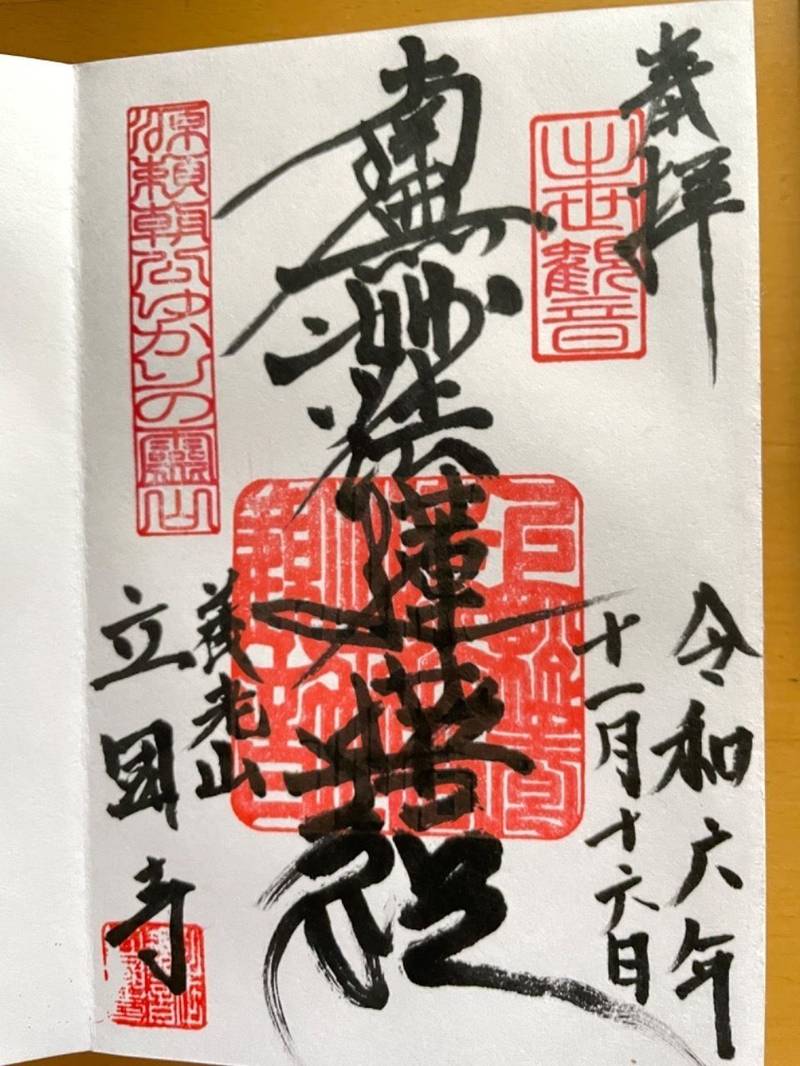 奉拝
出世観音
令和六年
十一月十六日
南無妙法蓮華経
源頼朝公ゆかりの靈山
養老山
立國寺